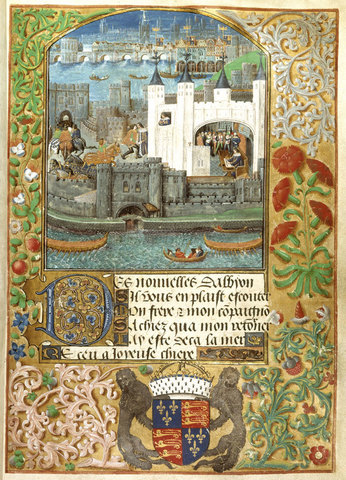 Des nouuelles dalbyon
Sil vous en plaist escouter
Mon frere & mon compaignon
Sachez qua mon retorner
Jay este deca la mer
Receu a Joyeuse chiere